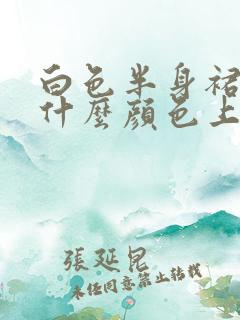 白色半身裙
什麼顏色上
張延昆
未經同意禁止轉載